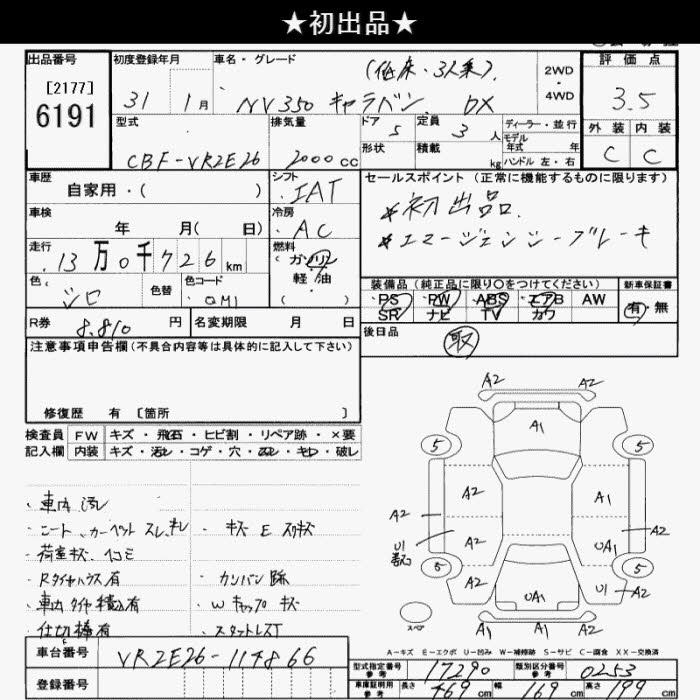 ★初出品★
出品番号
[2177]
6191
初度登録年月
31 1月
車名・グレード
(低床・3人乗).
NV350 キャラバン DX
2WD
4WD
評価点
3.5
外装 内装
C C
型式
CBF-VR2E26
排気量
2000cc
ドア 5
形状
定員 3人
積載 kg
ディーラー・並行
モデル年式 年
ハンドル 左・右
車歴
自家用・( )
シフト
IAT
車検
年 月( 日)
冷房
AC
走行
13万0千726km
燃料
ガソリン
軽油
( ・ )
色
シロ
色替
色コード
QM1
R券 8.810円
名変期限 月 日
セールスポイント(正常に機能するものに限ります)
*初出品.
*エマージェンシーブレーキ
装備品(純正品に限り○をつけてください)
PS PW ABS エアB AW
SR ナビ TV カワ
新車保証書
有・無
後日品
取
注意事項申告欄(不具合内容等は具体的に記入して下さい)
修復歴 有 〔箇所 〕
検査員
記入欄
FW キズ・飛石・ヒビ割・リペア跡・×要
内装 キズ・汚レ・コゲ・穴・スレ・キレ・破レ
・車内 汚レ
・シート、カーペット スレ、キレ
・荷室キズ、ヘコミ
・Rタイヤハウス有
・車内 タイヤ積込有
・仕切棒有
・キズ E スリキズ
・カンバン跡
・Wキャップ キズ
・スタットレスT
A2 A2
A1
5 5
A2 A1
A2 A2
U1 A2 UA1
5 5
A2 UA1 U1 A2
スペア
A1 A1 A2
A−キズ E−エクボ U−凹み W−補修跡 S−サビ C−腐食 XX−交換済
車台番号
VR2E26-114866
登録番号
型式指定番号
参考
17290
類別区分番号
参考
0253
車庫証明用
参考
長さ 469cm 幅 169cm 高さ 199cm